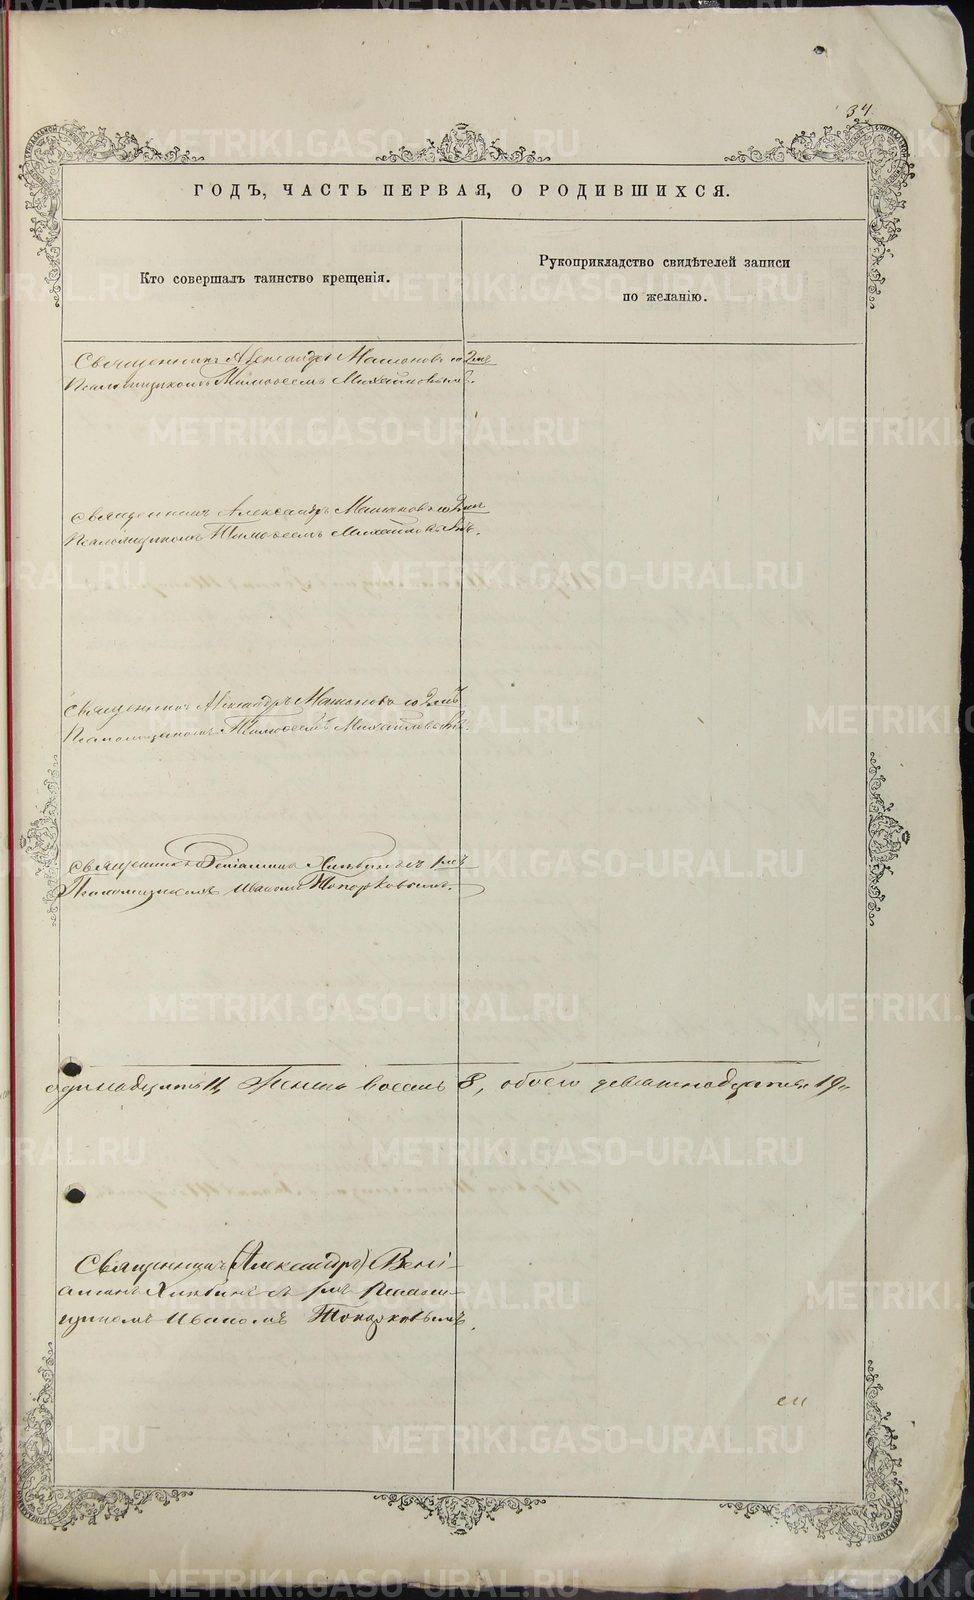 34
ГОДЪ, ЧАСТЬ ПЕРВАЯ, О РОДИВШИХСЯ.
Кто совершалъ таинство крещенія.
Рукоприкладство свидѣтелей записи
по желанію.
Священникъ Александръ Машановъ со 2мъ
Псаломщикомъ Тимоѳеемъ Михайловымъ.
Священникъ Александръ Машановъ со 2мъ
Псаломщикомъ Тимоѳеемъ Михайловымъ.
Священникъ Александръ Машановъ со 2мъ
Псаломщикомъ Тимоѳеемъ Михайловымъ.
Священникъ Веніаминъ съ
Псаломщикомъ Иваномъ Топорковымъ.
одинадцать 11, Женска восемь 8, обоего девятнадцать 19
Священникъ (Александръ) Вені-
аминъ съ Псалом-
щикомъ Иваномъ Топорковымъ.
METRIKI.GASO-URAL.RU